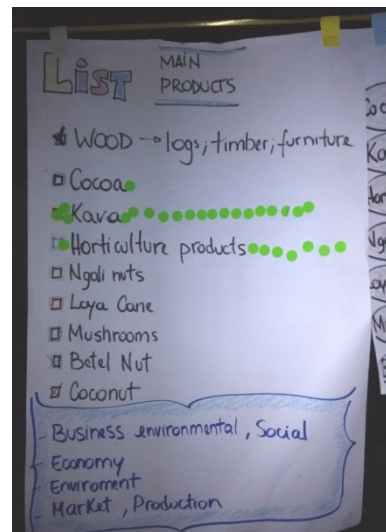 LIST
MAIN
PRODUCTS
WOOD → logs; timber; furniture
Cocoa
Kava
Horticulture products
Ngali nuts
Loya Cane
Mushrooms
Betel Nut
Coconut
- Business environmental, Social
- Economy
- Enviroment
- Market, Production